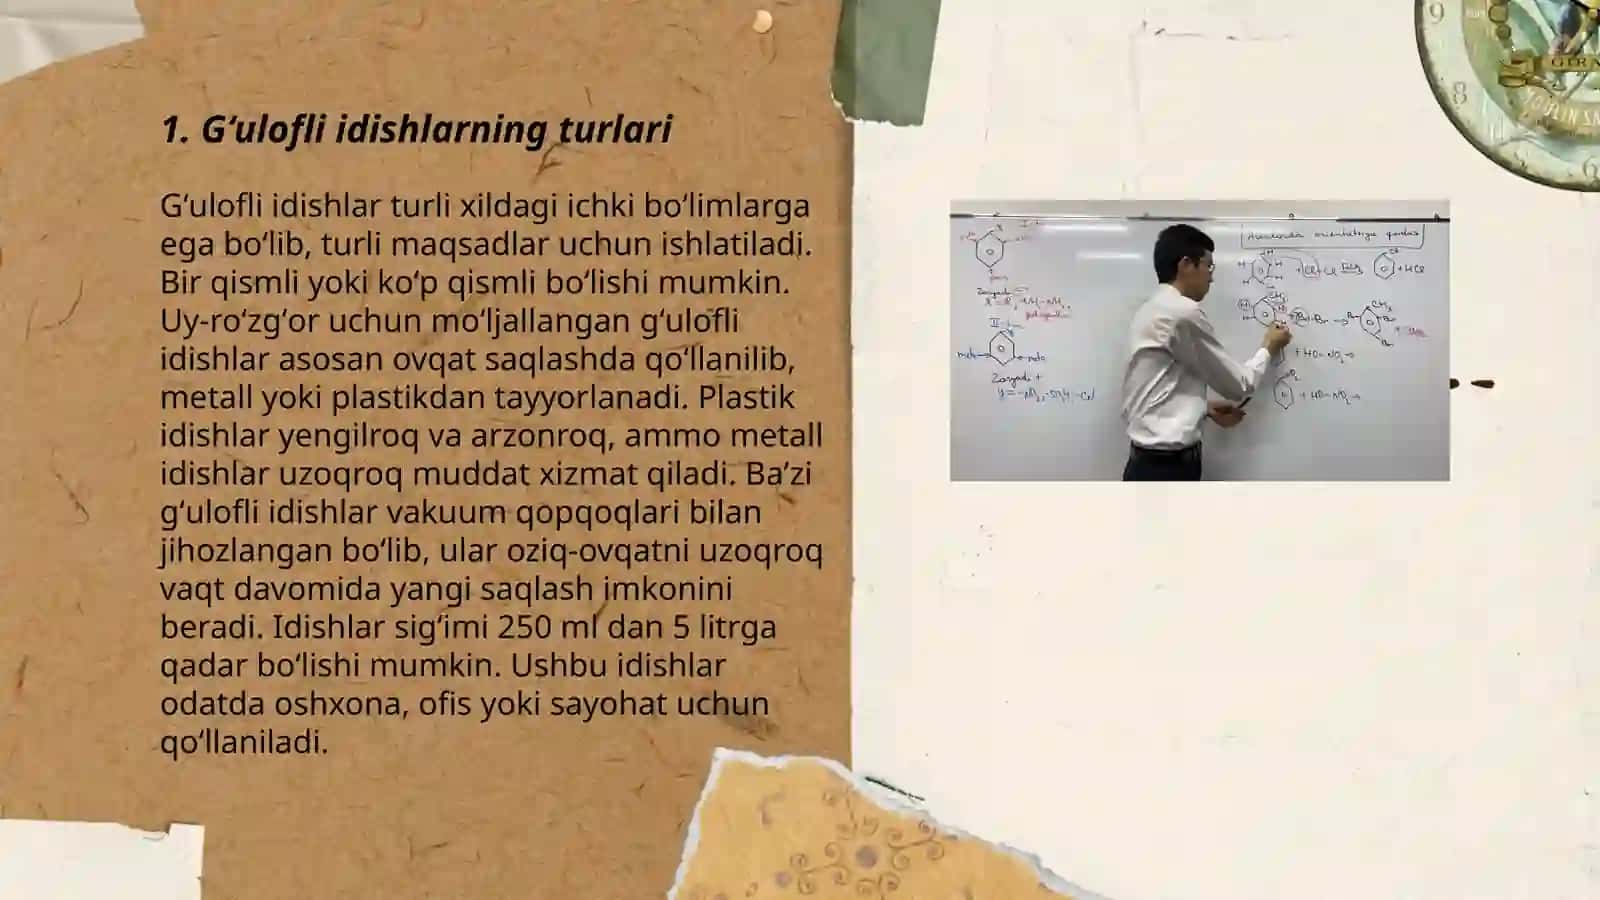 1. Gʻulofli idishlarning turlari
Gʻulofli idishlar turli xildagi ichki boʻlimlarga
ega boʻlib, turli maqsadlar uchun ishlatiladi.
Bir qismli yoki koʻp qismli boʻlishi mumkin.
Uy-roʻzgʻor uchun moʻljallangan gʻulofli
idishlar asosan ovqat saqlashda qoʻllanilib,
metall yoki plastikdan tayyorlanadi. Plastik
idishlar yengilroq va arzonroq, ammo metall
idishlar uzoqroq muddat xizmat qiladi. Baʼzi
gʻulofli idishlar vakuum qopqoqlari bilan
jihozlangan boʻlib, ular oziq-ovqatni uzoqroq
vaqt davomida yangi saqlash imkonini
beradi. Idishlar sigʻimi 250 ml dan 5 litrga
qadar boʻlishi mumkin. Ushbu idishlar
odatda oshxona, ofis yoki sayohat uchun
qoʻllaniladi.
9
8
6
Zaryadi +
+ HO-NO2→
+ HO-NO2→